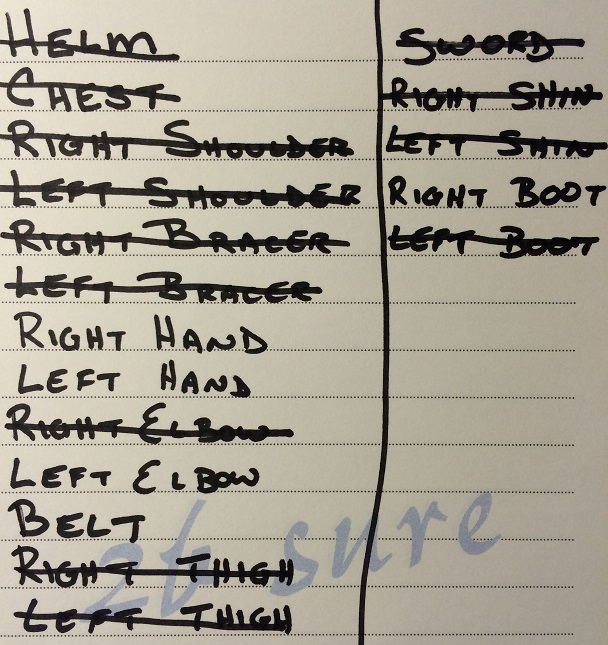 HELM
CHEST
RIGHT SHOULDER
LEFT SHOULDER
RIGHT BRACER
LEFT BRACER
RIGHT HAND
LEFT HAND
RIGHT ELBOW
LEFT ELBOW
BELT
RIGHT THIGH
LEFT THIGH
SWORD
RIGHT SHIN
LEFT SHIN
RIGHT BOOT
LEFT BOOT
2b sure